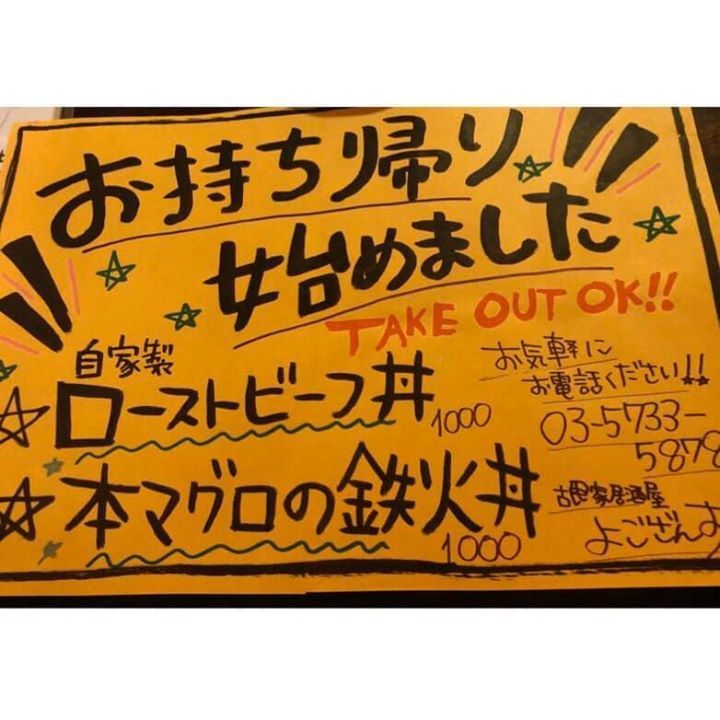 お持ち帰り
始めました
TAKE OUT OK!!
自家製
ローストビーフ丼
1000
本マグロの鉄火丼
1000
お気軽に
お電話ください!!
03-5733-
5878
古民家居酒屋
よござんす